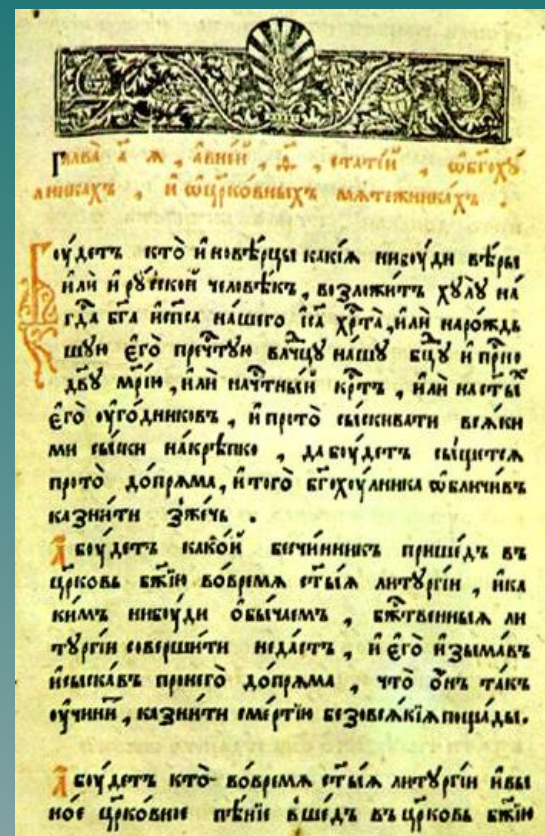 Глава̀ а҃ я , а̀вне́й , д҃ , стате́й , ѡ҆бг҃охꙋ́
лникахъ , и҆ ѡ҆цр҃ко́вныхъ мѧте́жникахъ
Бꙋ́детъ кто̀ и҆новѣ́рцы какі́ѧ нибꙋ́ди вѣ́ры
и҆лѝ и҆ рꙋ́сской человѣ́къ , возло́житъ хꙋлꙋ̀ на́
гдⷭ҇а бг҃а и҆сп҃са на́шего і҆с҃а хрⷭ҇та̀ , и҆лѝ наро́ждь
шꙋю є҆го̀ пречⷭ҇тꙋю влⷣчцꙋ нашꙋ бцⷣꙋ и҆ прⷭ҇но
дв҃ꙋ мр҃і́ю , и҆лѝначⷭ҇тны́й крⷭ҇тъ , и҆лѝ на ст҃ы́хъ
є҆го̀ ᲂу҆го́дниковъ , и҆ прото̀ сы́скивати всѧ́ки
ми сы́ски на́крѣпко , да бꙋ́детъ сы́щетсѧ
прото̀ до́прѧма , и҆ того̀ бг҃охꙋ́лника ѡ҆бличи́въ
казни́ти зже́чь .
А҆ бꙋ́детъ како́й безчи́нникъ прише́дъ въ
цр҃ковь бж҃їю во́времѧ ст҃ы́ѧ литꙋргі́и , и҆ка
ки́мъ нибꙋ́ди ѻ҆бы́чаемъ , бжⷭ҇твенныѧ ли
тꙋргі́и соверши́ти неда́стъ , и҆ є҆го̀ и҆зыма́въ
и҆сыска́въ пронего̀ до́прѧма , что̀ ѻ҆́нъ та́къ
ᲂу҆чини́тъ , казни́ти сме́ртїю безовсѧ́кїѧ поща́ды .
А҆ бꙋ́детъ кто̀ во́времѧ ст҃ы́ѧ литꙋргі́и и҆вы
но́е цр҃ко́вное пѣ́нїе вше́дъ въ цр҃ковь бж҃їю